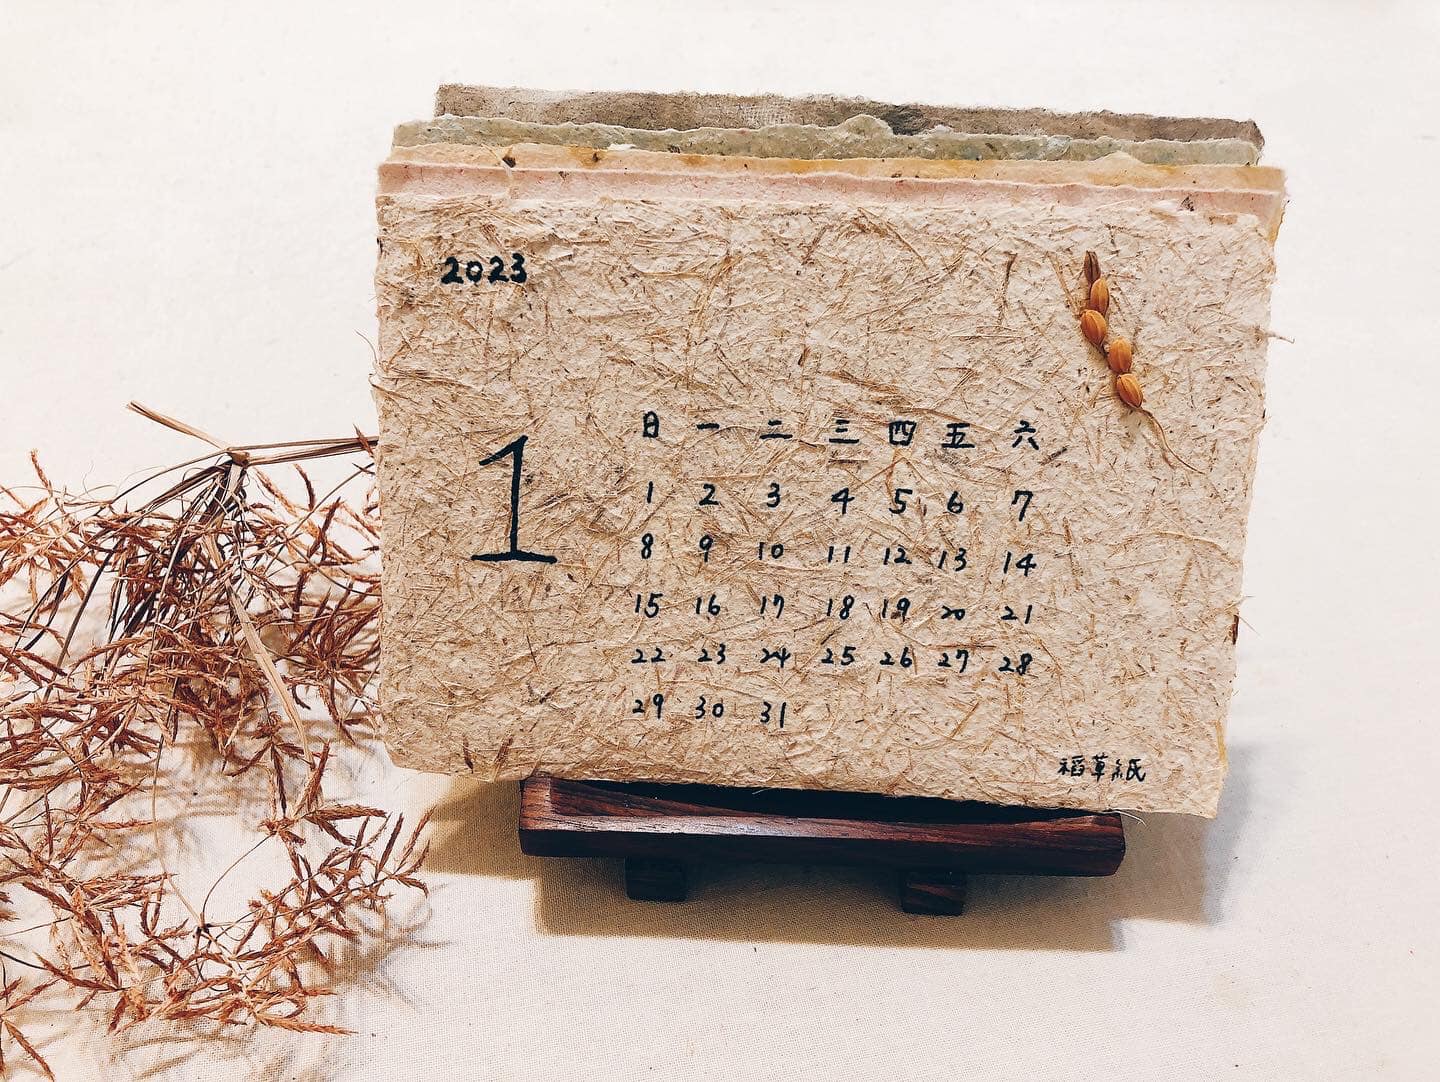 2023
1
日 一 二 三 四 五 六
1 2 3 4 5 6 7
8 9 10 11 12 13 14
15 16 17 18 19 20 21
22 23 24 25 26 27 28
29 30 31
稻草紙